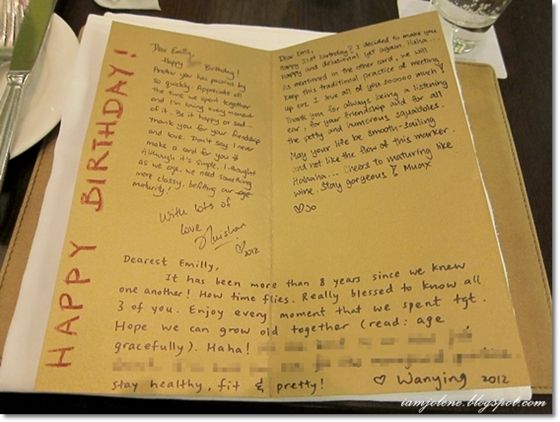 HAPPY BIRTHDAY!
Dear Emily,
Happy Birthday!
Another year has passed by
so quickly. Appreciate all
the time we spent together
and I'm loving every moment
of it. Be it happy or sad.
Thank you for your friendship
and love. Don't say I never
make a card for you
Although it's simple, I thought
as we age, we need something
more classy, befitting our age
maturity.
With lots of
love
Huishan
2012
Dear Emi,
Happy 21st birthday! I decided to make you
happy and delusional yet again. Haha...
As mentioned in the other card, we will
keep this traditional practice of meeting
up ere. I love all of you sooooo much!
Thank you for always being a listening
ear, for your friendship and for all
the petty and humorous squabbles.
May your life be smooth-sailing
and not like the flow of this marker.
Hahaha... Cheers to maturing like
wine. Stay gorgeous! Muax
♡ Jo
Dearest Emilly,
It has been more than 8 years since we knew
one another! How time flies. Really blessed to know all
3 of you. Enjoy every moment that we spent tgt.
Hope we can grow old together (read: age
gracefully). Haha!
stay healthy, fit & pretty!
♡ Wanying 2012
iamjolene.blogspot.com